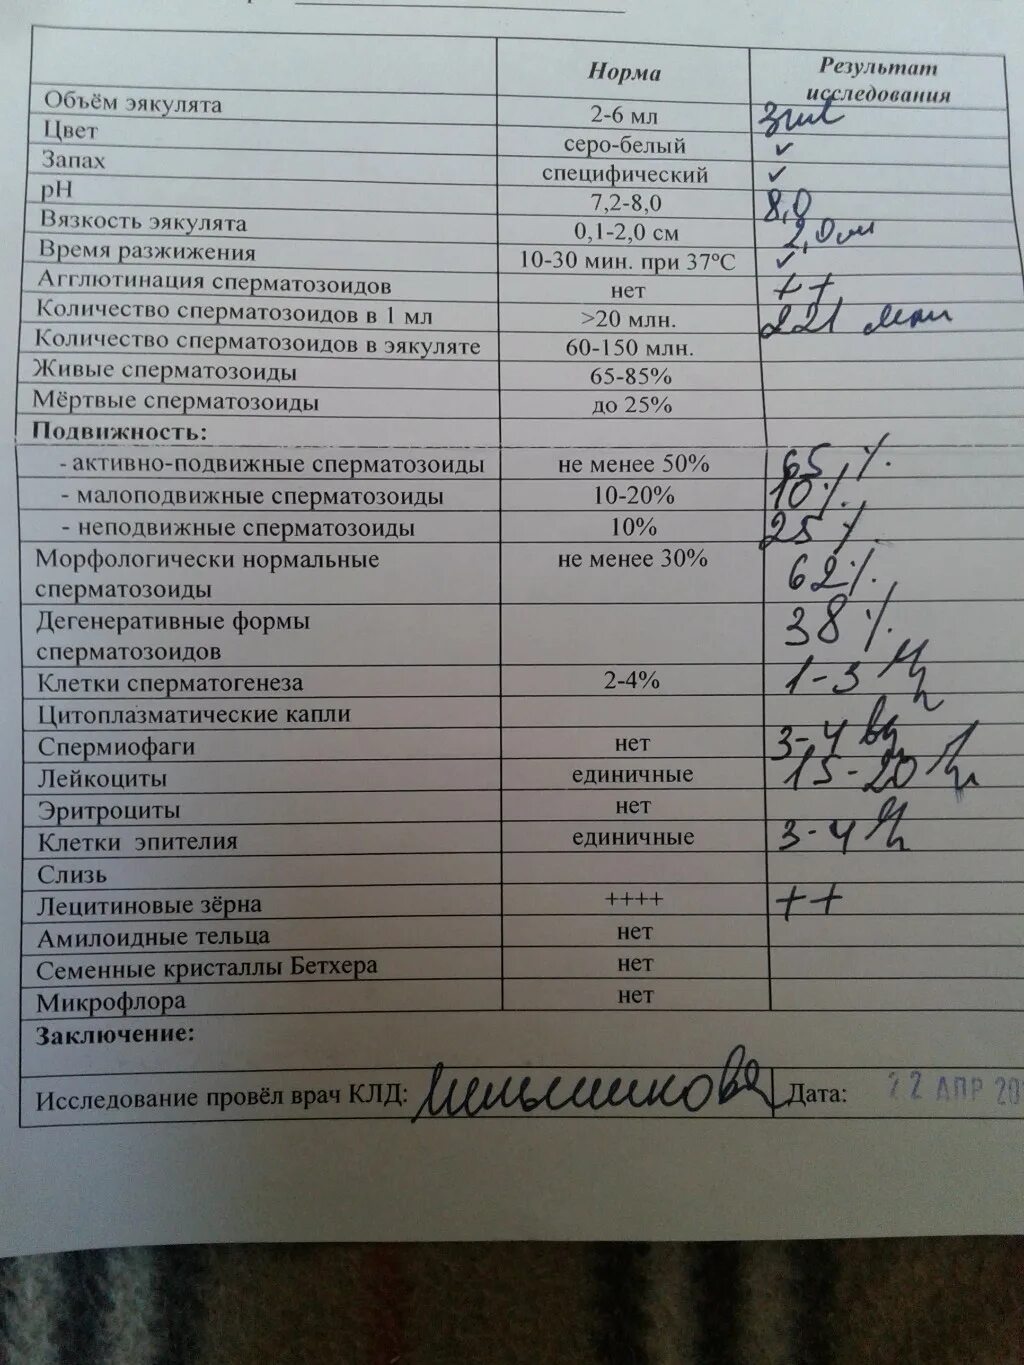 Норма Результат исследования
Объём эякулята 2-6 мл 3 мл
Цвет серо-белый ✓
Запах специфический ✓
pH 7,2-8,0 8,0
Вязкость эякулята 0,1-2,0 см 2,0 см
Время разжижения 10-30 мин. при 37°C ✓
Агглютинация сперматозоидов нет ++
Количество сперматозоидов в 1 мл >20 млн. 221 млн
Количество сперматозоидов в эякуляте 60-150 млн.
Живые сперматозоиды 65-85%
Мёртвые сперматозоиды до 25%
Подвижность:
- активно-подвижные сперматозоиды не менее 50% 65 %.
- малоподвижные сперматозоиды 10-20% 10 %.
- неподвижные сперматозоиды 10% 25 %
Морфологически нормальные не менее 30% 62 %.
сперматозоиды
Дегенеративные формы 38 %.
сперматозоидов
Клетки сперматогенеза 2-4% 1-3
Цитоплазматические капли
Спермиофаги нет 3-4
Лейкоциты единичные 15-20
Эритроциты нет
Клетки эпителия единичные 3-4
Слизь
Лецитиновые зёрна ++++ ++
Амилоидные тельца нет
Семенные кристаллы Бетхера нет
Микрофлора нет
Заключение:
Исследование провёл врач КЛД: Меньшикова Дата: 22 АПР 20